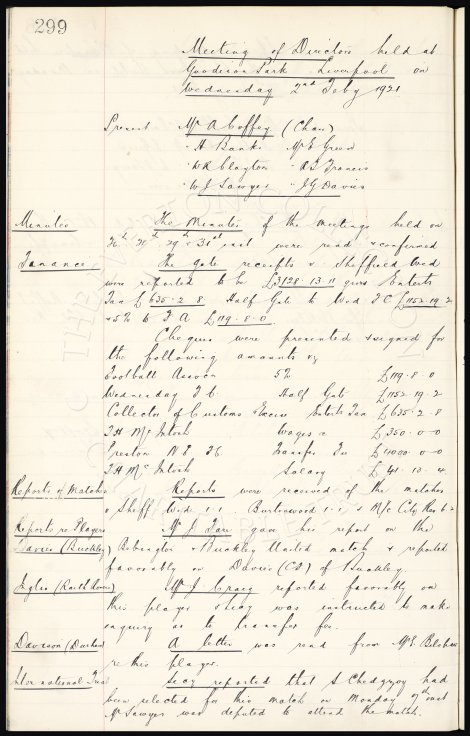 299
Meeting of Directors held at
Goodison Park Liverpool on
Wednesday 2nd Feby 1921
Present Mr A Coffey (Chair)
" A Banks Mr E Green
" W R Clayton " A T Francis
" W J Sawyer " J G Davies
Minutes The Minutes of the meetings held on
29th & 31st inst were read & confirmed
Finance The gate receipts v Sheffield Wed
were reported to be £3128-13-11 gross Enterts
Tax £635-2-8 Half Gate to Wed F C £1152-19-2
& 5% to F A £119-8-0
Cheques were presented & signed for
the following amounts viz
Football Assocn 5% £119-8-0
Wednesday F C Half Gate £1152-19-2
Collector of Customs & Excise Enterts Tax £635-2-8
T H McIntosh Wages &c £350-0-0
Preston N E FC Transfer Fee £4000-0-0
T H McIntosh Salary £41-13-4
Reports of Matches Reports were received of the matches
v Sheff Wed 1-1 Burslem & M/c City Res
Reports re Players Mr J Farr gave his report on the
Davies (Buckley) Bebington v Buckley United match & reported
favorably on Davies (CF) of Buckley.
Inglis (Raith Rovers) Mr J Craig reported favorably on
this player & Secy was instructed to make
enquiry as to transfer fee.
Davison (Durham) A letter was read from Mr E Belshaw
re this player.
International Trial Secy reported that S Chedgzoy had
been selected for this match on Monday 7th inst
Mr Sawyer was deputed to attend the match.